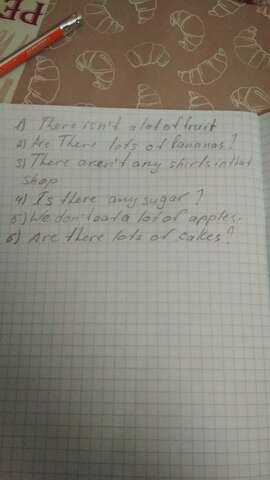 PE
1) There isn't a lot of fruit
2) Are There lots of bananas?
3) There aren't any shirts in that
shop
4) Is there any sugar?
5) We don't eat a lot of apples.
6) Are there lots of cakes?